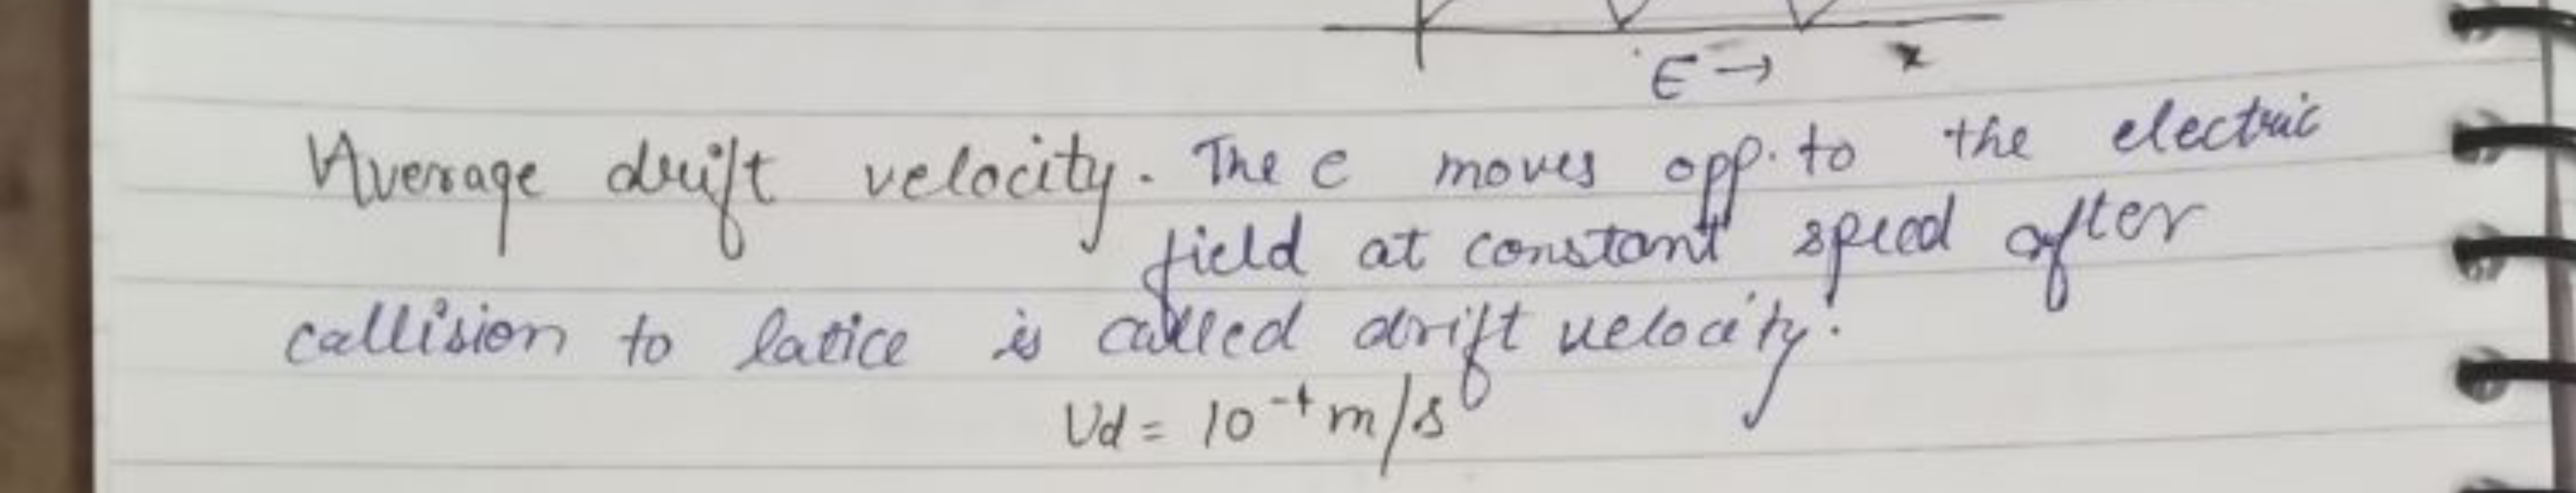 E → x
Average drift velocity. The e moves opp. to the electric
field at constant speed after
callision to latice is called drift velocity.
Vd = 10⁻⁴ m/s